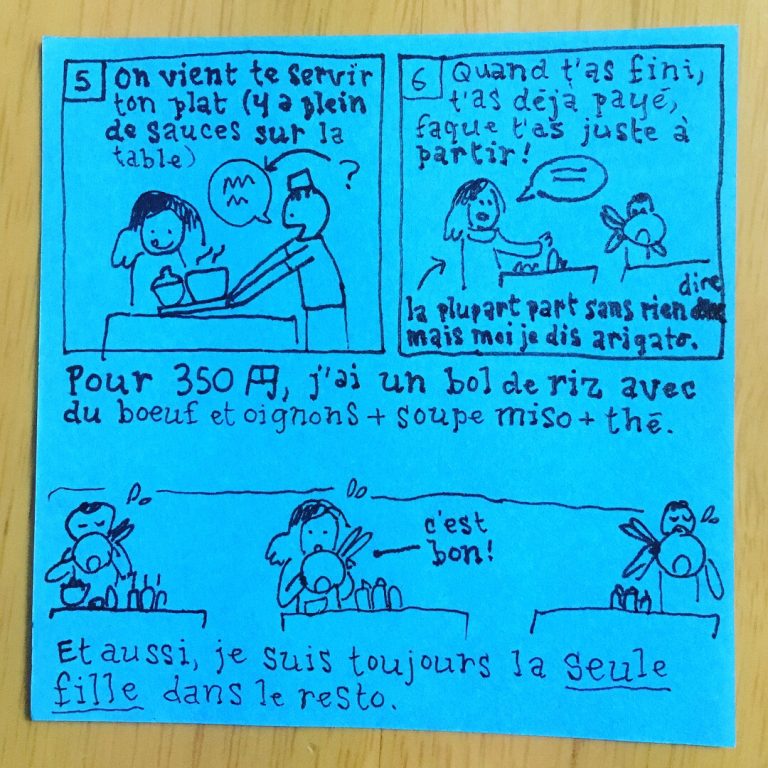 5 On vient te servir
ton plat (y a plein
de sauces sur la
table)
?
6 Quand t'as fini,
t'as déjà payé,
faque t'as juste à
partir!
la plupart part sans rien dire
mais moi je dis arigato.
Pour 350 円, j'ai un bol de riz avec
du boeuf et oignons + soupe miso + thé.
c'est
bon!
Et aussi, je suis toujours la seule
fille dans le resto.